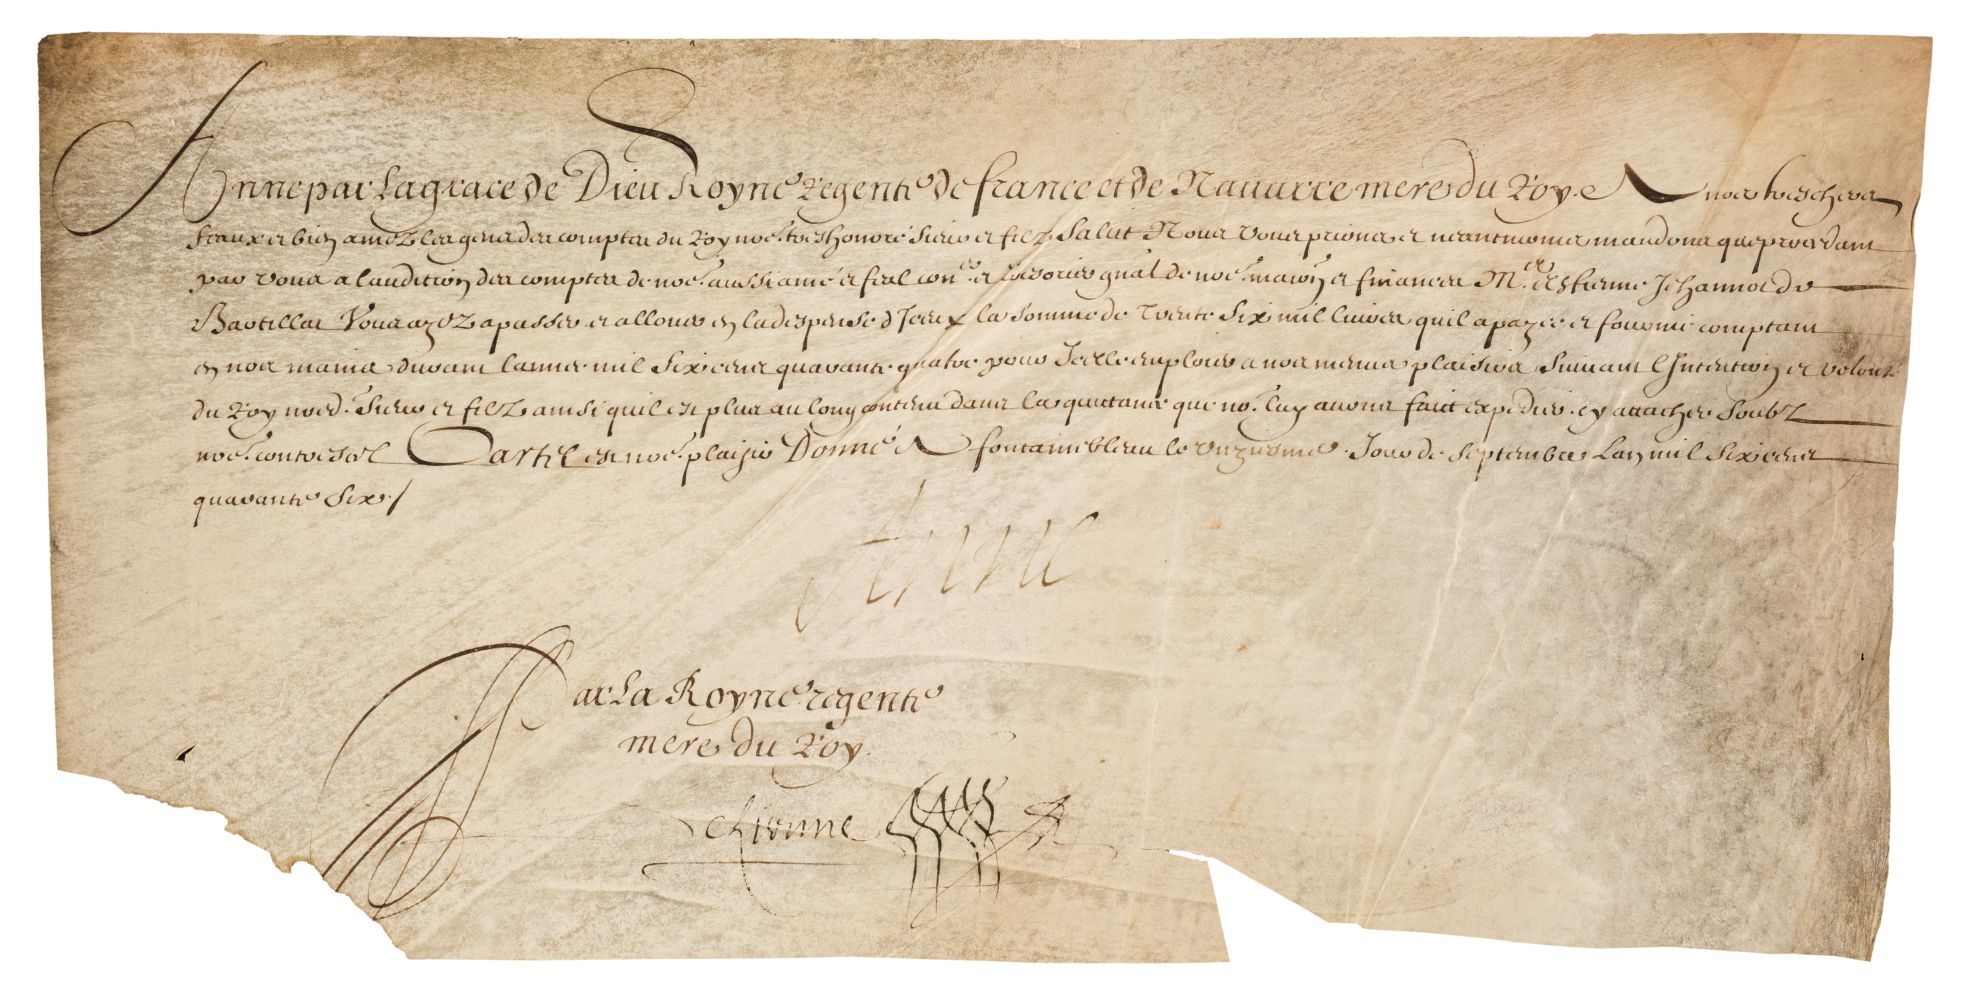 Anne par La grace de Dieu Royne regente de france et de Navarre mere du Roy. A nos tres chers
feaux et bien amez les gens des comptes du Roy nore. tres honoré sieur et filz Salut Nous vous prions et neantmoins mandons que procedant
par vous a laudition des comptes de nore. aussi amé et feal coner. et tresorier gnâl de nore. maison et finances Me. Estienne Jehannot de
Bartillat vous ayez a passer et allouer en la despense d'Iceux la somme de Trente Six mil livres quil a payée et fourni comptant
en nos mains durant lannee mil Six cens quarante quatre pour Icelle employer a nos menus plaisirs Suivant l'Intention et volonté
du Roy nored. Sieur et filz ainsi quil est plus au long contenu dans la quictance que nos. luy avons fait expedier cy attachee soubz
nore. contrescel Car tel est nore. plaisir Donné A fontainebleau le unziesme Jour de Septembre Lan mil six cens
quarante Six ./
Anne
Par La Royne regente
mere du Roy.
De Lionne